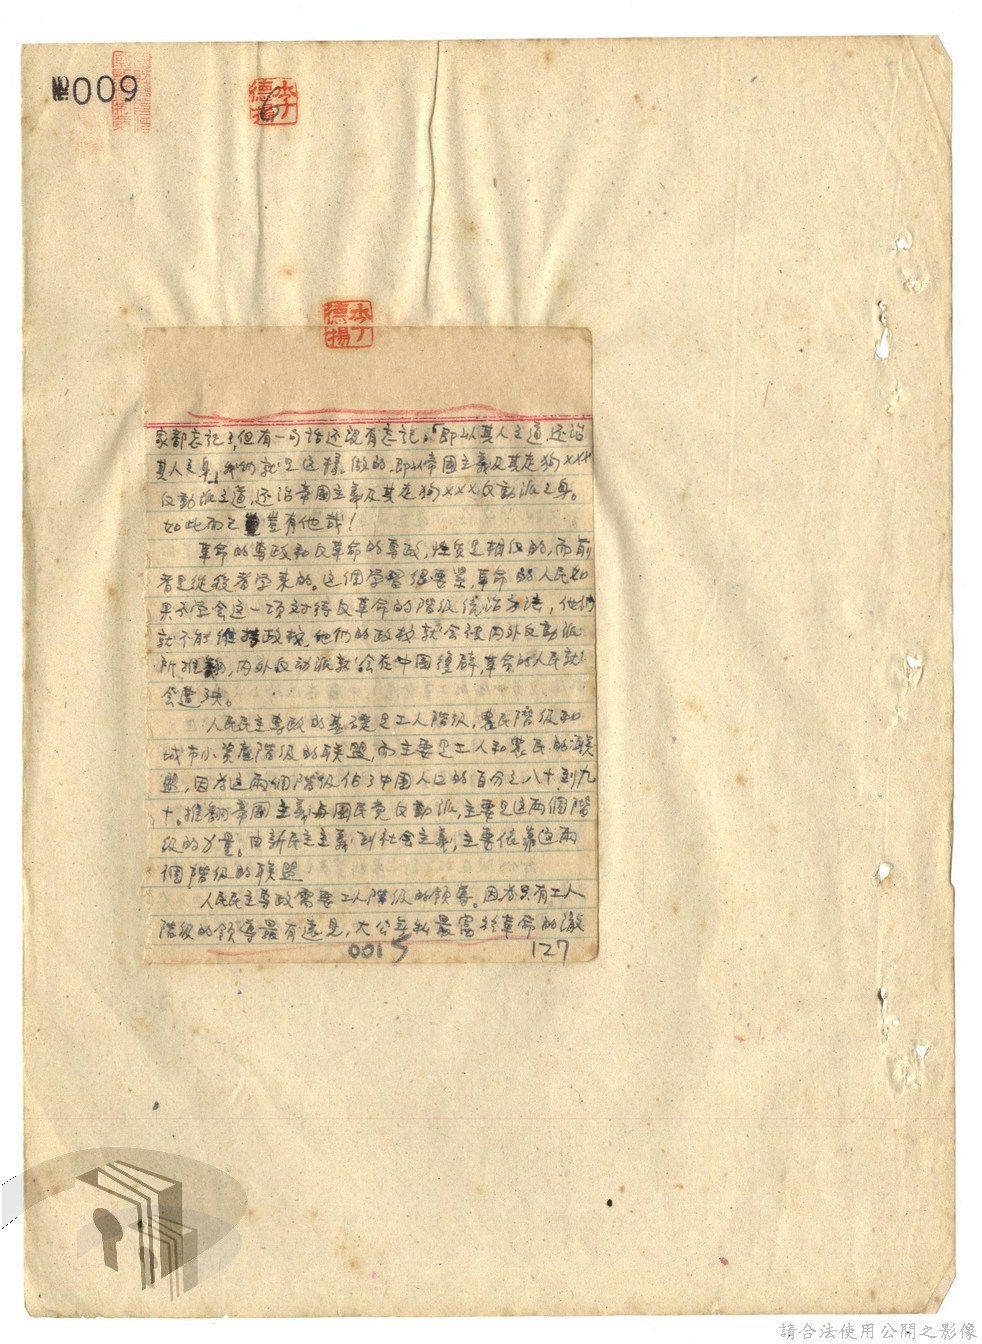 №009
李丁
德揚
李丁
德揚
家都忘記了,但有一句話还没有忘記,「即以其人之道,还治
其人之身」我们就是這樣做的,即以帝國主義及其走狗×××
反動派之道,还治帝國主義及其走狗×××反動派之身。
如此而已豈有他哉!
革命的專政和反革命的專政,性質是相反的,而前
者是從後者学来的。这個学習很要緊,革命的人民如
果不学会这一項对待反革命的階級統治方法,他們
就不能維持政权,他们的政权就会被内外反動派
所推翻,内外反动派就会在中国復辟,革命的人民就
会遭殃。
人民民主專政的基礎是工人階级,農民階级和
城市小資產階级的联盟,而主要是工人和農民的联
盟,因为这兩個階级佔了中國人口的百分之八十到九
十。推翻帝國主義与國民党反動派,主要是这兩個階
级的力量。由新民主主義到社会主義,主要依靠这兩
個階级的联盟
人民民主專政需要工人階级的領導。因为只有工人
階级的領導最有遠見,大公無私最富於革命的澈
0015
127
請合法使用公開之影像